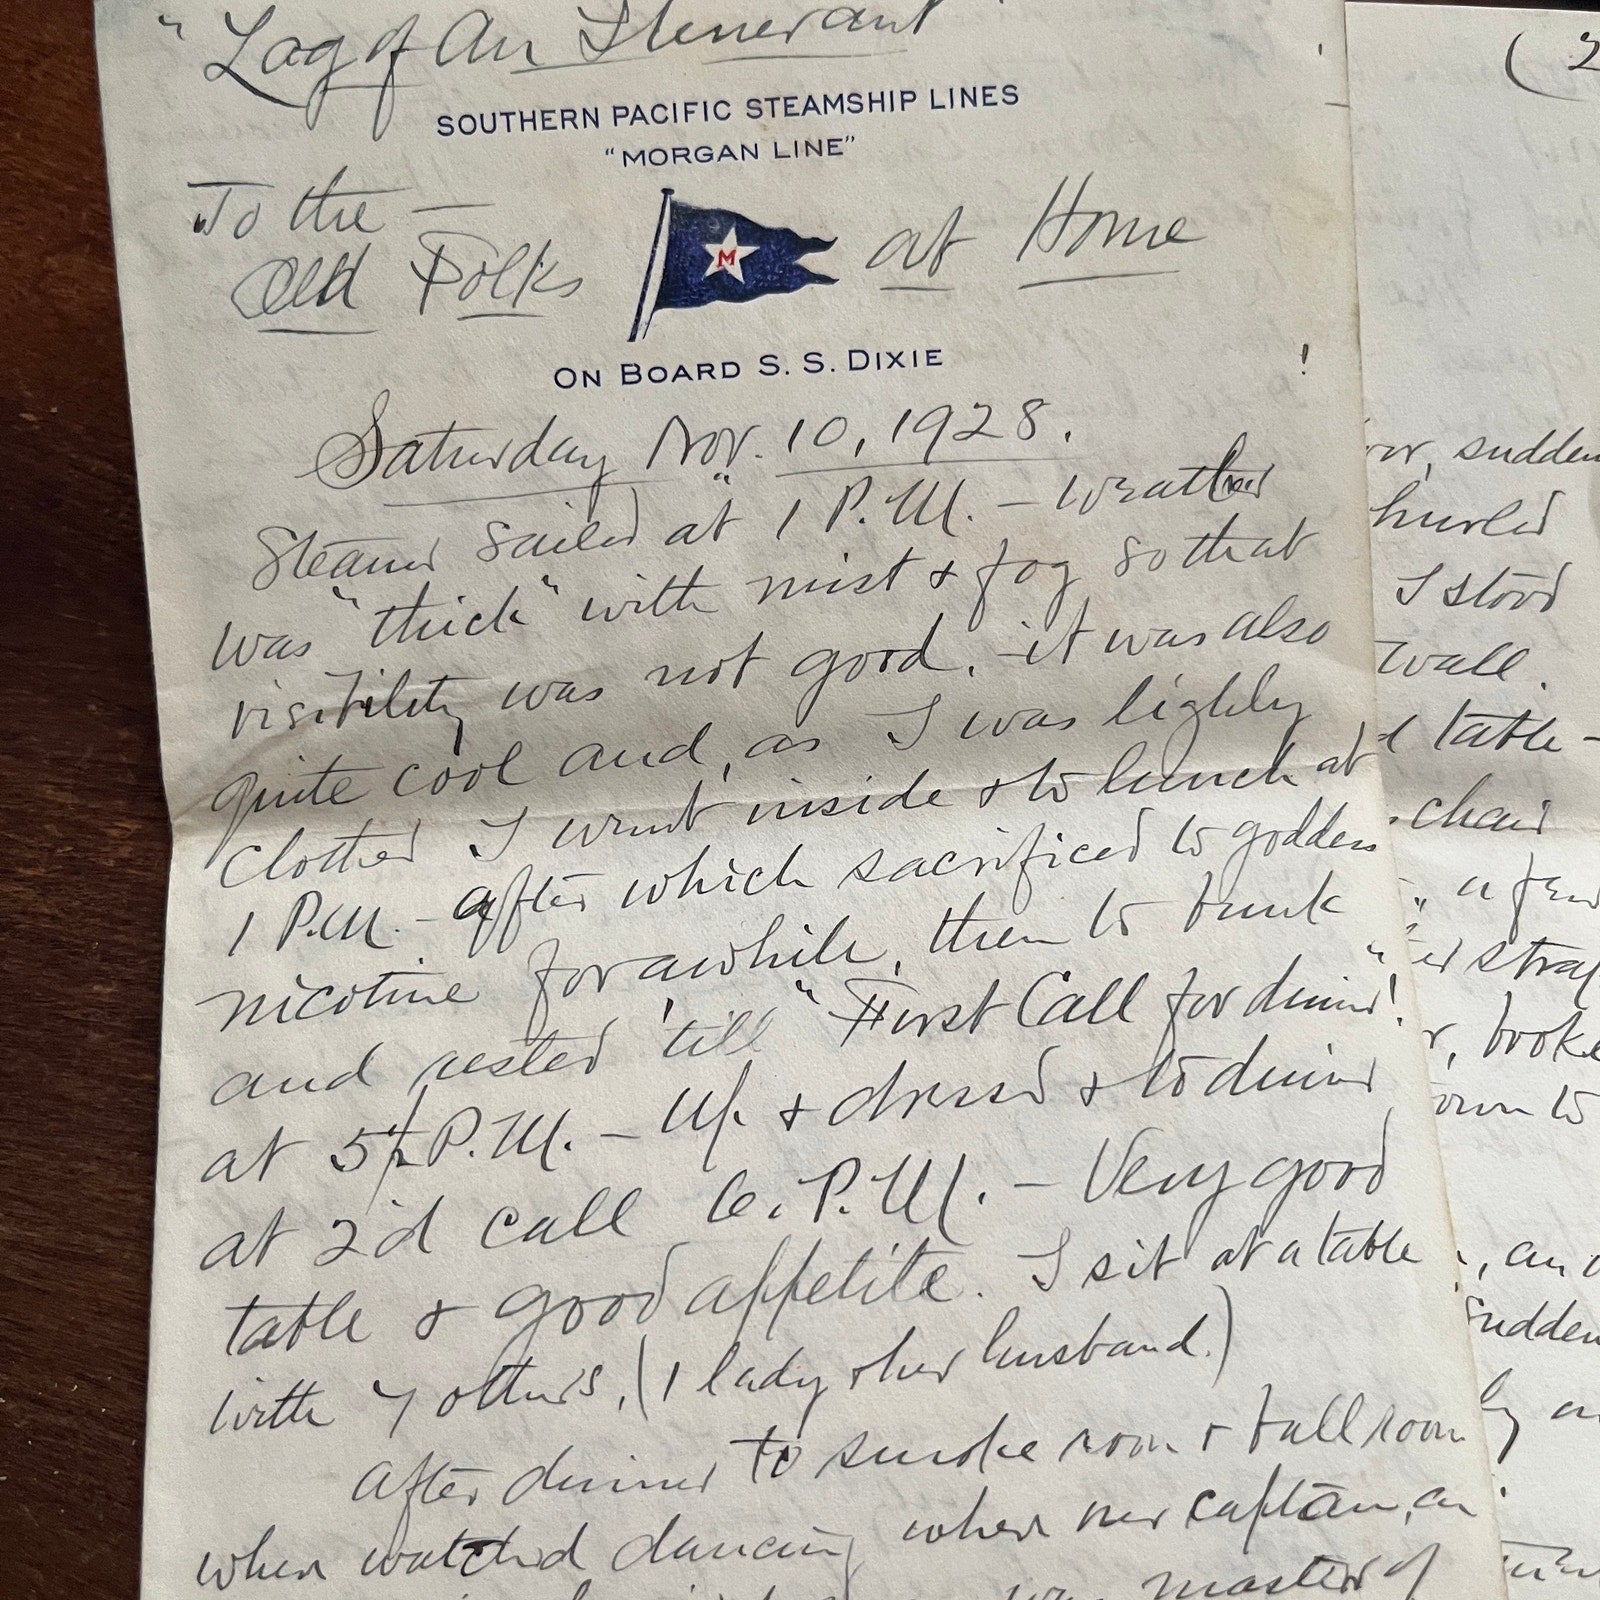 "Log of An Itinerant"
SOUTHERN PACIFIC STEAMSHIP LINES
"MORGAN LINE"
To the —
Old Folks at Home
M
ON BOARD S. S. DIXIE
!
Saturday Nov. 10, 1928.
Steamer sailed at 1 P.M. — weather
was "thick" with mist & fog so that
visibility was not good. - it was also
quite cool and, as I was lighly
clothed I went inside & to lunch at
1 P.M. - after which sacrificed to goddess
nicotine for awhile, then to bunk
and rested 'till "First Call for dinner"
at 5½ P.M. — Up & dressed & to dinner
at 2'd call 6. P.M. — Very good
table & good appetite. I sit at a table
with 7 others, (1 lady & her husband.)
After dinner to smoke room & ball room
when watched dancing when our captain, an
was master of
(2
sudden
hurled
I stood
wall.
table -
chair
a few
strap
, broke
down to
, an
sudden